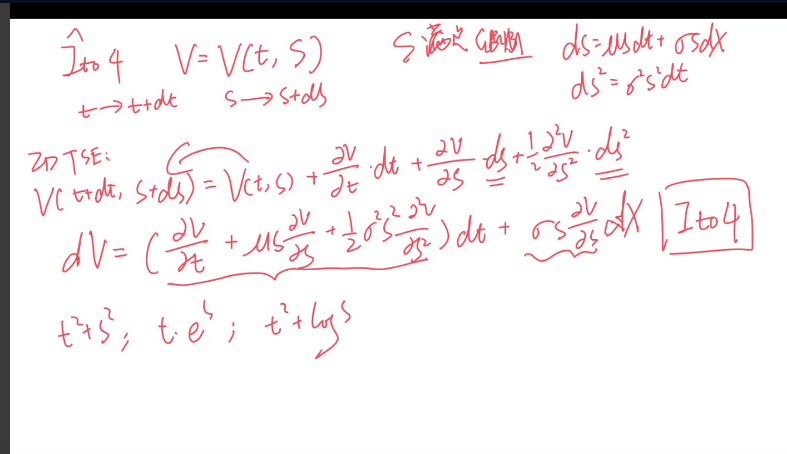 Îto 4 V = V(t, S) S 满足 GBM ds = μsdt + σsdX
t → t+dt s → s+ds ds² = σ²s²dt
2D TSE:
V(t+dt, S+ds) = V(t, S) + ∂V/∂t · dt + ∂V/∂S · ds + 1/2 ∂²V/∂S² · ds²
dV = (∂V/∂t + μs ∂V/∂S + 1/2 σ²s² ∂²V/∂S²) dt + σs ∂V/∂S dX Ito 4
t²+s²; t·eˢ; t²+logs